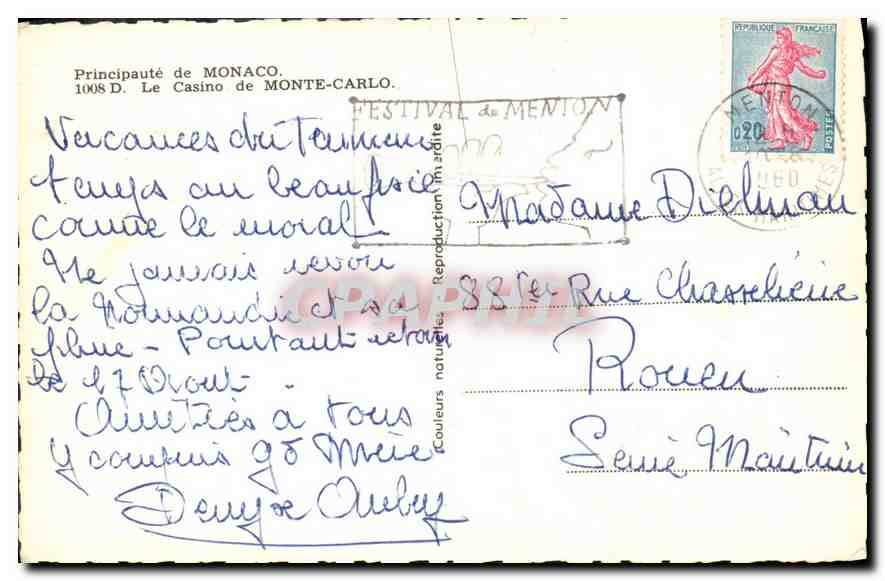 Principauté de MONACO.
1008 D. Le Casino de MONTE-CARLO.
Vacances
temps au beau fixe
comme le moral
Ne jamais revoir
la Normandie et sa
pluie - Pourtant retour
le 17 Aout.
Amitiés à tous
y compris gd Mère
Denyse Aubry
Couleurs naturelles Reproduction interdite
FESTIVAL de MENTON
REPUBLIQUE FRANÇAISE
0,20
POSTES
MENTON
Madame Dielman
88 ter Rue Chasselièvre
Rouen
Seine Maritime
CPAPHIL